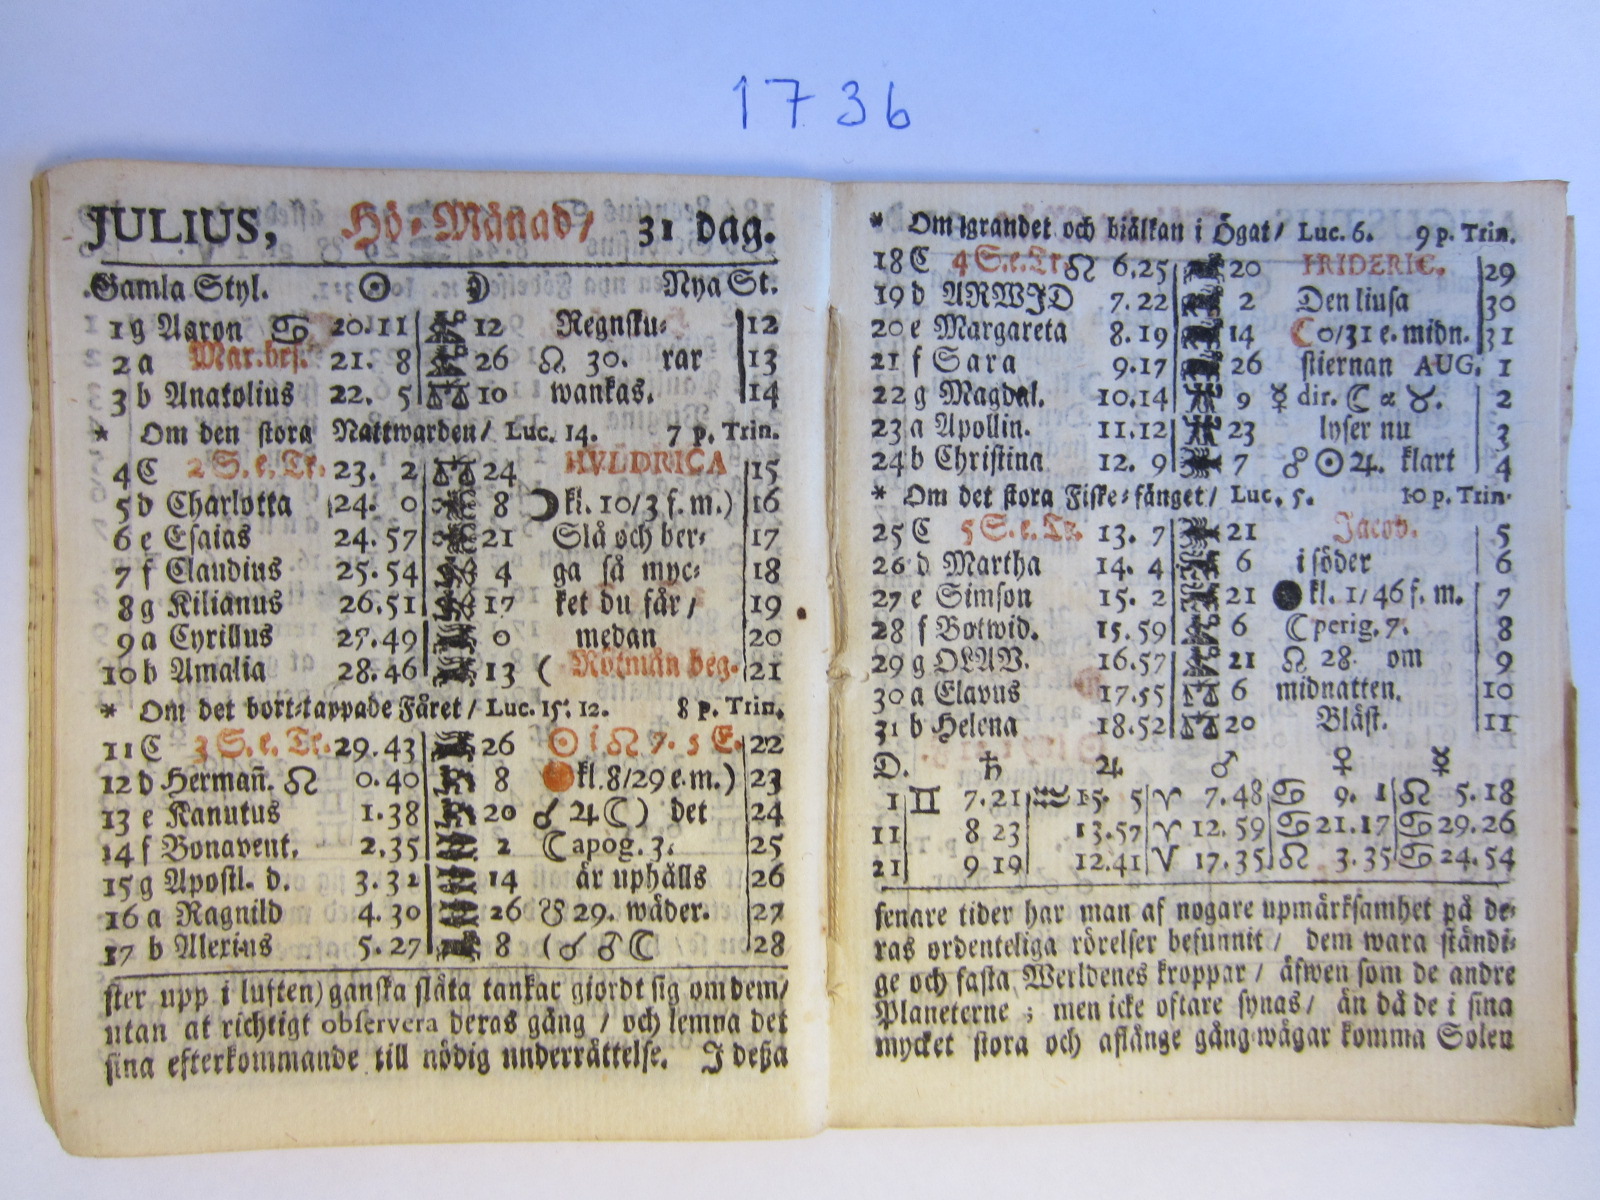 1736
JULIUS, Hö-Månad/ 31 dag.
Gamla Styl. ☉ ☽ Nya St.
1 g Aaron ♋ 20.11 12 Regnsku⸗ 12
2 a Mar.bes. 21. 8 26 ☊ 30. rar 13
3 b Anatolius 22. 5 10 wankas. 14
* Om den stora Nattwarden/ Luc. 14. 7 p. Trin.
4 C 2 S. e. Tr. 23. 2 24 HVLDRICA 15
5 d Charlotta 24. 0 8 ☽ kl. 10/3 f. m.) 16
6 e Esaias 24.57 21 Slå och ber⸗ 17
7 f Claudius 25.54 4 ga så myc⸗ 18
8 g Kilianus 26.51 17 ket du får/ 19
9 a Cyrillus 27.49 0 medan 20
10 b Amalia 28.46 13 ( Rötmån beg. 21
* Om det bort⸗tappade Fåret/ Luc. 15. 12. 8 p. Trin.
11 C 3 S. e. Tr. 29.43 26 ☉ i ♌ 7. 5 E. 22
12 d Herman̄. ♌ 0.40 8 kl. 8/29 e.m.) 23
13 e Kanutus 1.38 20 ☌ ♃ ☾ ) det 24
14 f Bonavent. 2.35 2 ☾ apog. 3. 25
15 g Apostl. d. 3.32 14 är uphålls 26
16 a Ragnild 4.30 26 ☋ 29. wäder. 27
17 b Alexius 5.27 8 (☌ ♂ ☾ 28
ster upp i luften) ganska slåta tankar giordt sig om dem/
utan at richtigt observera deras gång / och lemna det
sina efterkommande till nödig underrättelse. I deßa
* Om grandet och biälkan i Ögat/ Luc. 6. 9 p. Trin.
18 C 4 S. e. Tr. ♌ 6.25 20 FRIDERIC. 29
19 d ARWID 7.22 2 Den liusa 30
20 e Margareta 8.19 14 ☾ 0/31 e. midn. 31
21 f Sara 9.17 26 stiernan AUG. 1
22 g Magdal. 10.14 9 ☿ dir. ☾ ∝ ♉. 2
23 a Apollin. 11.12 23 lyser nu 3
24 b Christina 12. 9 7 ☍ ☉ ♃. klart 4
* Om det stora Fiske⸗fånget/ Luc. 5. 10 p. Trin.
25 C 5 S. e. Tr. 13. 7 21 Jacob. 5
26 d Martha 14. 4 6 i söder 6
27 e Simson 15. 2 21 ● kl. 1/46 f. m. 7
28 f Botwid. 15.59 6 ☾ perig. 7. 8
29 g OLAV. 16.57 21 ☊ 28. om 9
30 a Elavus 17.55 6 midnatten. 10
31 b Helena 18.52 20 Blåst. 11
D. ♄ ♃ ♂ ♀ ☿
1 ♊ 7.21 ♒ 15. 5 ♈ 7.48 ♋ 9. 1 ♌ 5.18
11 8 23 13.57 ♈ 12.59 ♋ 21.17 ♋ 29.26
21 9 19 12.41 ♈ 17.35 ♌ 3.35 ♋ 24.54
senare tider har man af nogare upmärksamhet på de⸗
ras ordenteliga rörelser befunnit/ dem wara ständi⸗
ge och fasta Werldenes kroppar / äfwen som de andre
Planeterne ; men icke oftare synas/ än då de i sina
mycket stora och aflånge gång-wägar komma Solen